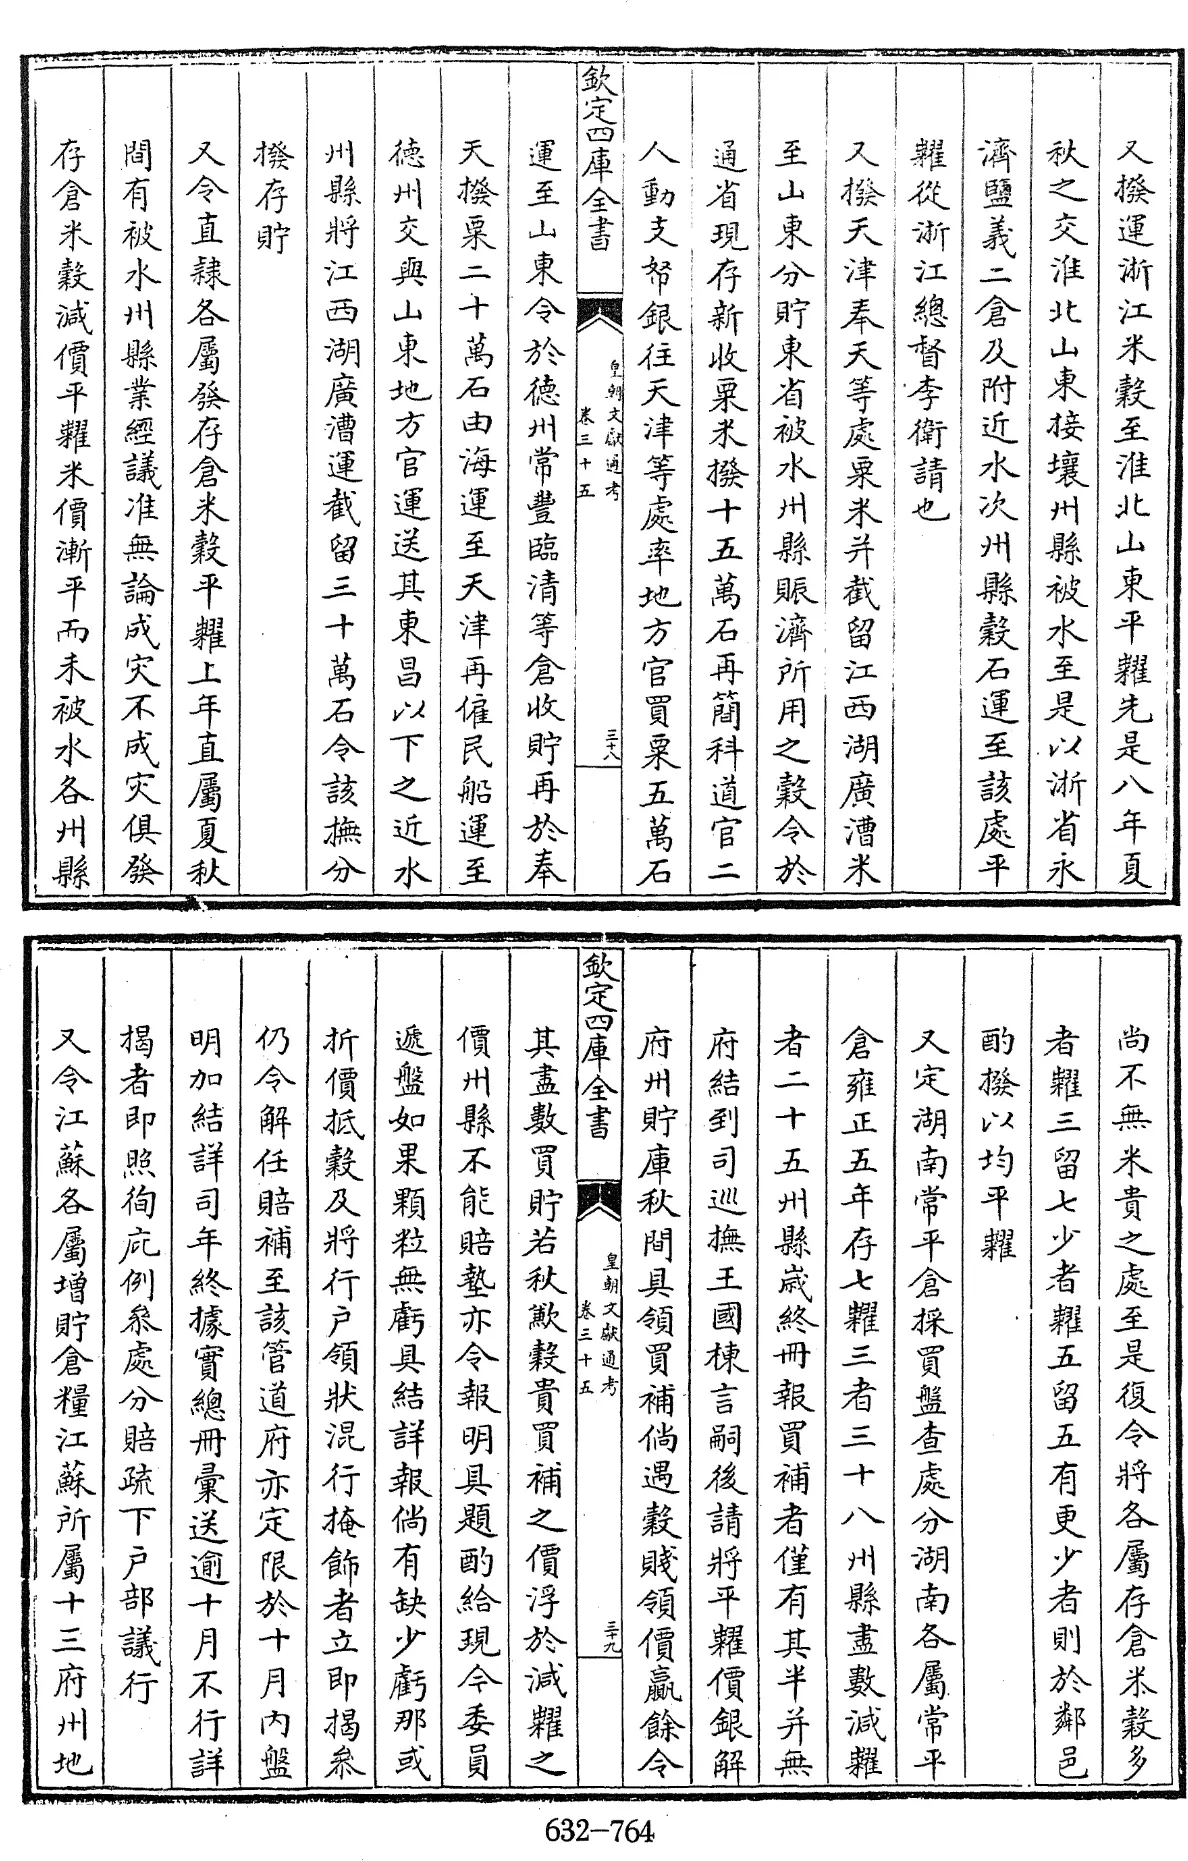 又撥運浙江米穀至淮北山東平糶先是八年夏
秋之交淮北山東接壤州縣被水至是以浙省永
濟鹽義二倉及附近水次州縣穀石運至該處平
糶從浙江總督李衛請也
又撥天津奉天等處粟米并截留江西湖廣漕米
至山東分貯東省被水州縣賑濟所用之穀令於
通省現存新收粟米撥十五萬石再簡科道官二
人動支帑銀往天津等處率地方官買粟五萬石
欽定四庫全書
皇朝文獻通考
卷三十五
三十八
運至山東令於德州常豐臨清等倉收貯再於奉
天撥粟二十萬石由海運至天津再僱民船運至
德州交與山東地方官運送其東昌以下之近水
州縣將江西湖廣漕運截留三十萬石令該撫分
撥存貯
又令直隸各屬發存倉米穀平糶上年直屬夏秋
間有被水州縣業經議准無論成灾不成灾俱發
存倉米穀減價平糶米價漸平而未被水各州縣
尚不無米貴之處至是復令將各屬存倉米穀多
者糶三留七少者糶五留五有更少者則於鄰邑
酌撥以均平糶
又定湖南常平倉採買盤查處分湖南各屬常平
倉雍正五年存七糶三者三十八州縣盡數減糶
者二十五州縣歲終冊報買補者僅有其半并無
府結到司巡撫王國棟言嗣後請將平糶價銀解
府州貯庫秋間具領買補倘遇穀賤領價贏餘令
欽定四庫全書
皇朝文獻通考
卷三十五
三十九
其盡數買貯若秋歉穀貴買補之價浮於減糶之
價州縣不能賠墊亦令報明具題酌給現令委員
遞盤如果顆粒無虧具結詳報倘有缺少虧那或
折價抵穀及將行戶領狀混行掩飾者立即揭叅
仍令解任賠補至該管道府亦定限於十月內盤
明加結詳司年終據實總冊彙送逾十月不行詳
揭者即照徇庇例叅處分賠疏下戶部議行
又令江蘇各屬增貯倉糧江蘇所屬十三府州地
632-764